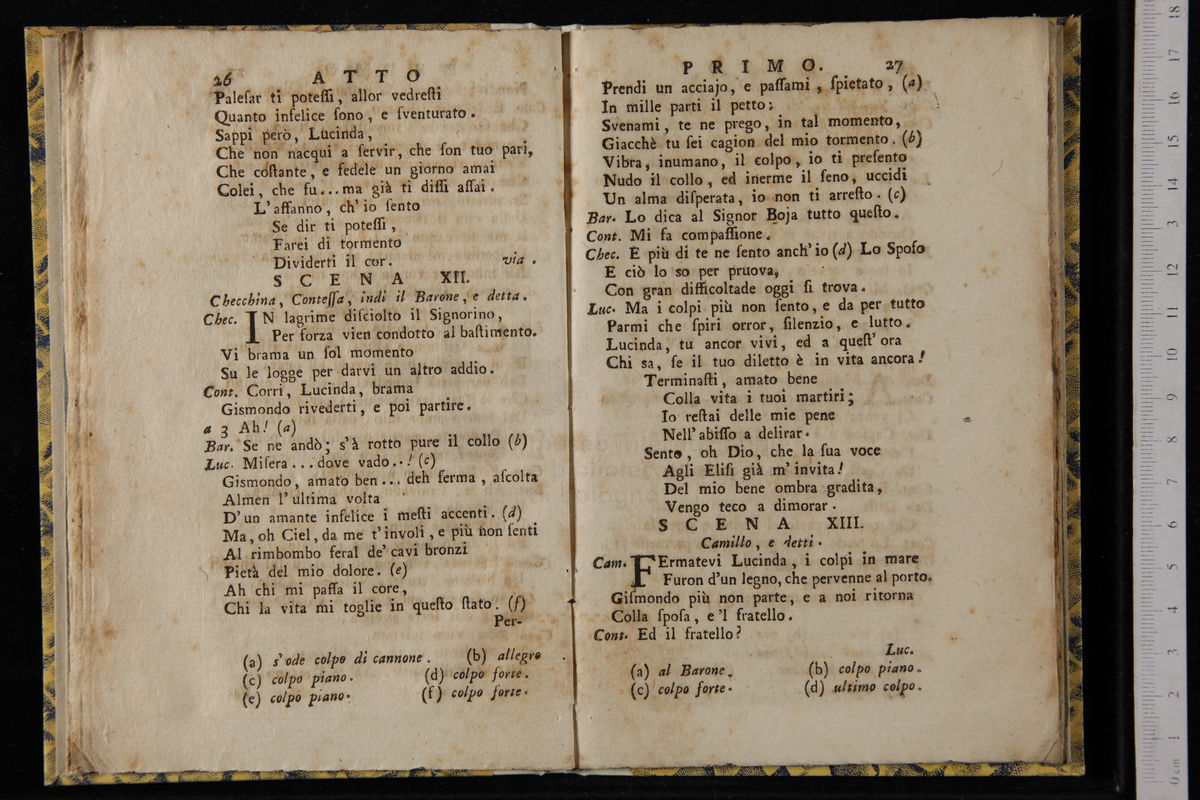 26 ATTO
Palesar ti potessi, allor vedresti
Quanto infelice sono, e sventurato.
Sappi però, Lucinda,
Che non nacqui a servir, che son tuo pari,
Che costante, e fedele un giorno amai
Colei, che fu...ma già ti dissi assai.
L'affanno, ch'io sento
Se dir ti potessi,
Farei di tormento
Dividerti il cor. via.
SCENA XII.
Checchina, Contessa, indi il Barone, e detta.
Chec. IN lagrime disciolto il Signorino,
Per forza vien condotto al bastimento.
Vi brama un sol momento
Su le logge per darvi un altro addio.
Cont. Corri, Lucinda, brama
Gismondo rivederti, e poi partire.
a 3 Ah! (a)
Bar. Se ne andò; s'à rotto pure il collo (b)
Luc. Misera...dove vado..! (c)
Gismondo, amato ben... deh ferma, ascolta
Almen l'ultima volta
D'un amante infelice i mesti accenti. (d)
Ma, oh Ciel, da me t'involi, e più non senti
Al rimbombo feral de' cavi bronzi
Pietà del mio dolore. (e)
Ah chi mi passa il core,
Chi la vita mi toglie in questo stato. (f)
Per-
(a) s'ode colpo di cannone. (b) allegro
(c) colpo piano. (d) colpo forte.
(e) colpo piano. (f) colpo forte.
PRIMO. 27
Prendi un acciajo, e passami, spietato, (a)
In mille parti il petto;
Svenami, te ne prego, in tal momento,
Giacchè tu sei cagion del mio tormento. (b)
Vibra, inumano, il colpo, io ti presento
Nudo il collo, ed inerme il seno, uccidi
Un alma disperata, io non ti arresto. (c)
Bar. Lo dica al Signor Boja tutto questo.
Cont. Mi fa compassione.
Chec. E più di te ne sento anch'io (d) Lo Sposo
E ciò lo so per pruova,
Con gran difficoltade oggi si trova.
Luc. Ma i colpi più non sento, e da per tutto
Parmi che spiri orror, silenzio, e lutto.
Lucinda, tu ancor vivi, ed a quest'ora
Chi sa, se il tuo diletto è in vita ancora!
Terminasti, amato bene
Colla vita i tuoi martiri;
Io restai delle mie pene
Nell'abisso a delirar.
Sento, oh Dio, che la sua voce
Agli Elisi già m'invita!
Del mio bene ombra gradita,
Vengo teco a dimorar.
SCENA XIII.
Camillo, e detti.
Cam. FErmatevi Lucinda, i colpi in mare
Furon d'un legno, che pervenne al porto.
Gismondo più non parte, e a noi ritorna
Colla sposa, e'l fratello.
Cont. Ed il fratello?
Luc.
(a) al Barone. (b) colpo piano.
(c) colpo forte. (d) ultimo colpo.